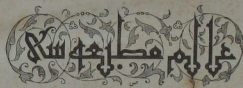 عالم مطبعه سی